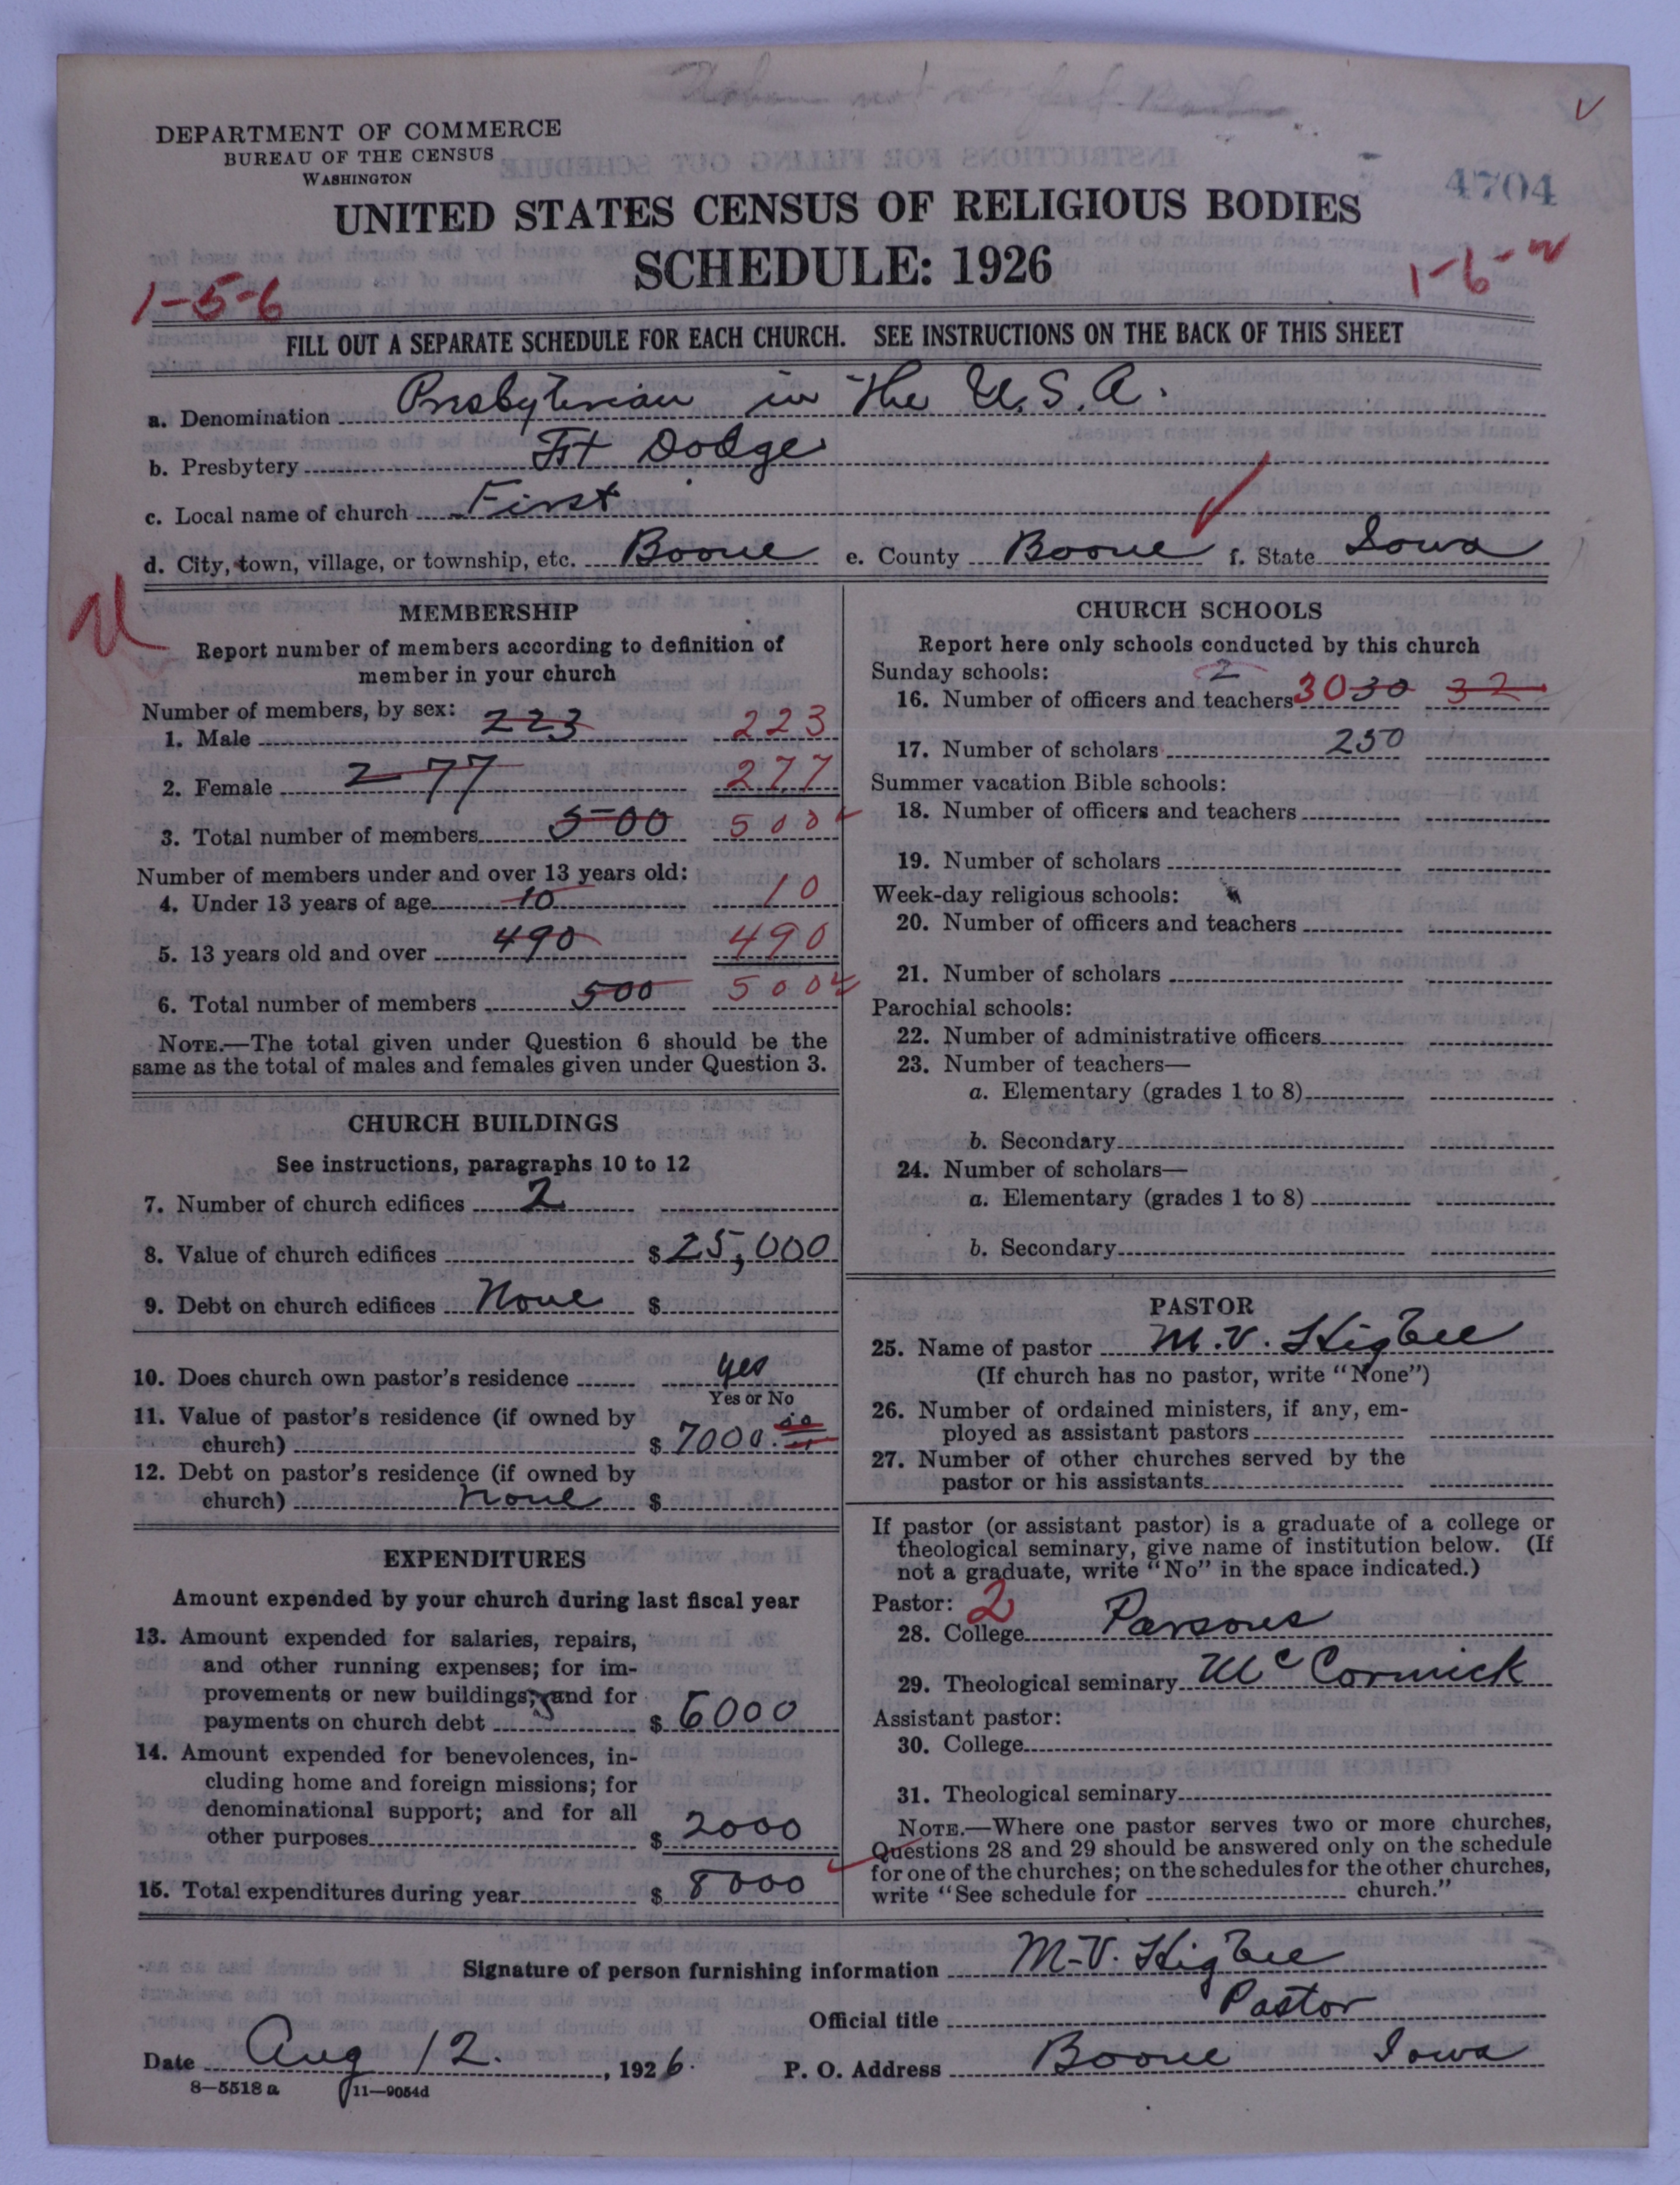 DEPARTMENT OF COMMERCE
BUREAU OF THE CENSUS
WASHINGTON
4704
UNITED STATES CENSUS OF RELIGIOUS BODIES
SCHEDULE: 1926
1-5-6
1-6-
FILL OUT A SEPARATE SCHEDULE FOR EACH CHURCH. SEE INSTRUCTIONS ON THE BACK OF THIS SHEET
a. Denomination Presbyterian in the U.S.A.
b. Presbytery Ft Dodge
c. Local name of church First
d. City, town, village, or township, etc. Boone e. County Boone f. State Iowa
MEMBERSHIP
Report number of members according to definition of
member in your church
Number of members, by sex:
1. Male 223 223
2. Female 277 277
3. Total number of members 500 500
Number of members under and over 13 years old:
4. Under 13 years of age 10 10
5. 13 years old and over 490 490
6. Total number of members 500 500
NOTE.—The total given under Question 6 should be the
same as the total of males and females given under Question 3.
CHURCH BUILDINGS
See instructions, paragraphs 10 to 12
7. Number of church edifices 2
8. Value of church edifices $ 25,000
9. Debt on church edifices None $
10. Does church own pastor's residence yes
Yes or No
11. Value of pastor's residence (if owned by
church) $ 7000.00
12. Debt on pastor's residence (if owned by
church) none $
EXPENDITURES
Amount expended by your church during last fiscal year
13. Amount expended for salaries, repairs,
and other running expenses; for im-
provements or new buildings; and for
payments on church debt $ 6000
14. Amount expended for benevolences, in-
cluding home and foreign missions; for
denominational support; and for all
other purposes $ 2000
15. Total expenditures during year $ 8000
CHURCH SCHOOLS
Report here only schools conducted by this church
Sunday schools: 2
16. Number of officers and teachers 30 30 32
17. Number of scholars 250
Summer vacation Bible schools:
18. Number of officers and teachers
19. Number of scholars
Week-day religious schools:
20. Number of officers and teachers
21. Number of scholars
Parochial schools:
22. Number of administrative officers
23. Number of teachers—
a. Elementary (grades 1 to 8)
b. Secondary
24. Number of scholars—
a. Elementary (grades 1 to 8)
b. Secondary
PASTOR
25. Name of pastor M.V. Higbee
(If church has no pastor, write "None")
26. Number of ordained ministers, if any, em-
ployed as assistant pastors
27. Number of other churches served by the
pastor or his assistants
If pastor (or assistant pastor) is a graduate of a college or
theological seminary, give name of institution below. (If
not a graduate, write "No" in the space indicated.)
Pastor: 2
28. College Parsons
29. Theological seminary McCormick
Assistant pastor:
30. College
31. Theological seminary
NOTE.—Where one pastor serves two or more churches,
Questions 28 and 29 should be answered only on the schedule
for one of the churches; on the schedules for the other churches,
write "See schedule for church."
Signature of person furnishing information M-V. Higbee
Official title Pastor
Date Aug 12. , 1926. P. O. Address Boone Iowa
8-5518 a 11-9054d